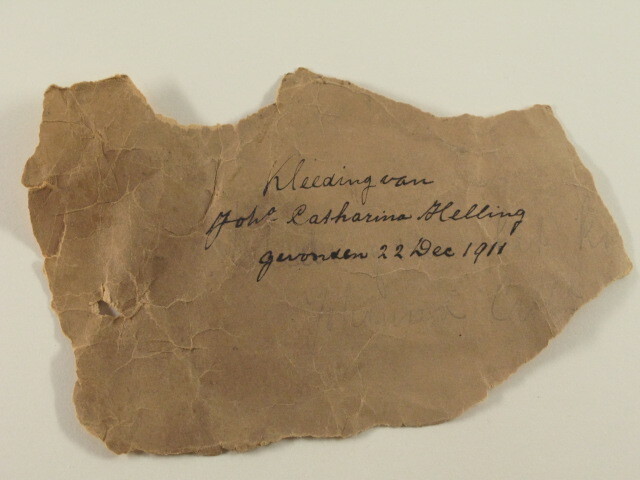 Kleeding van
Joh.ª Catharina Helling
gevonden 22 Dec 1911